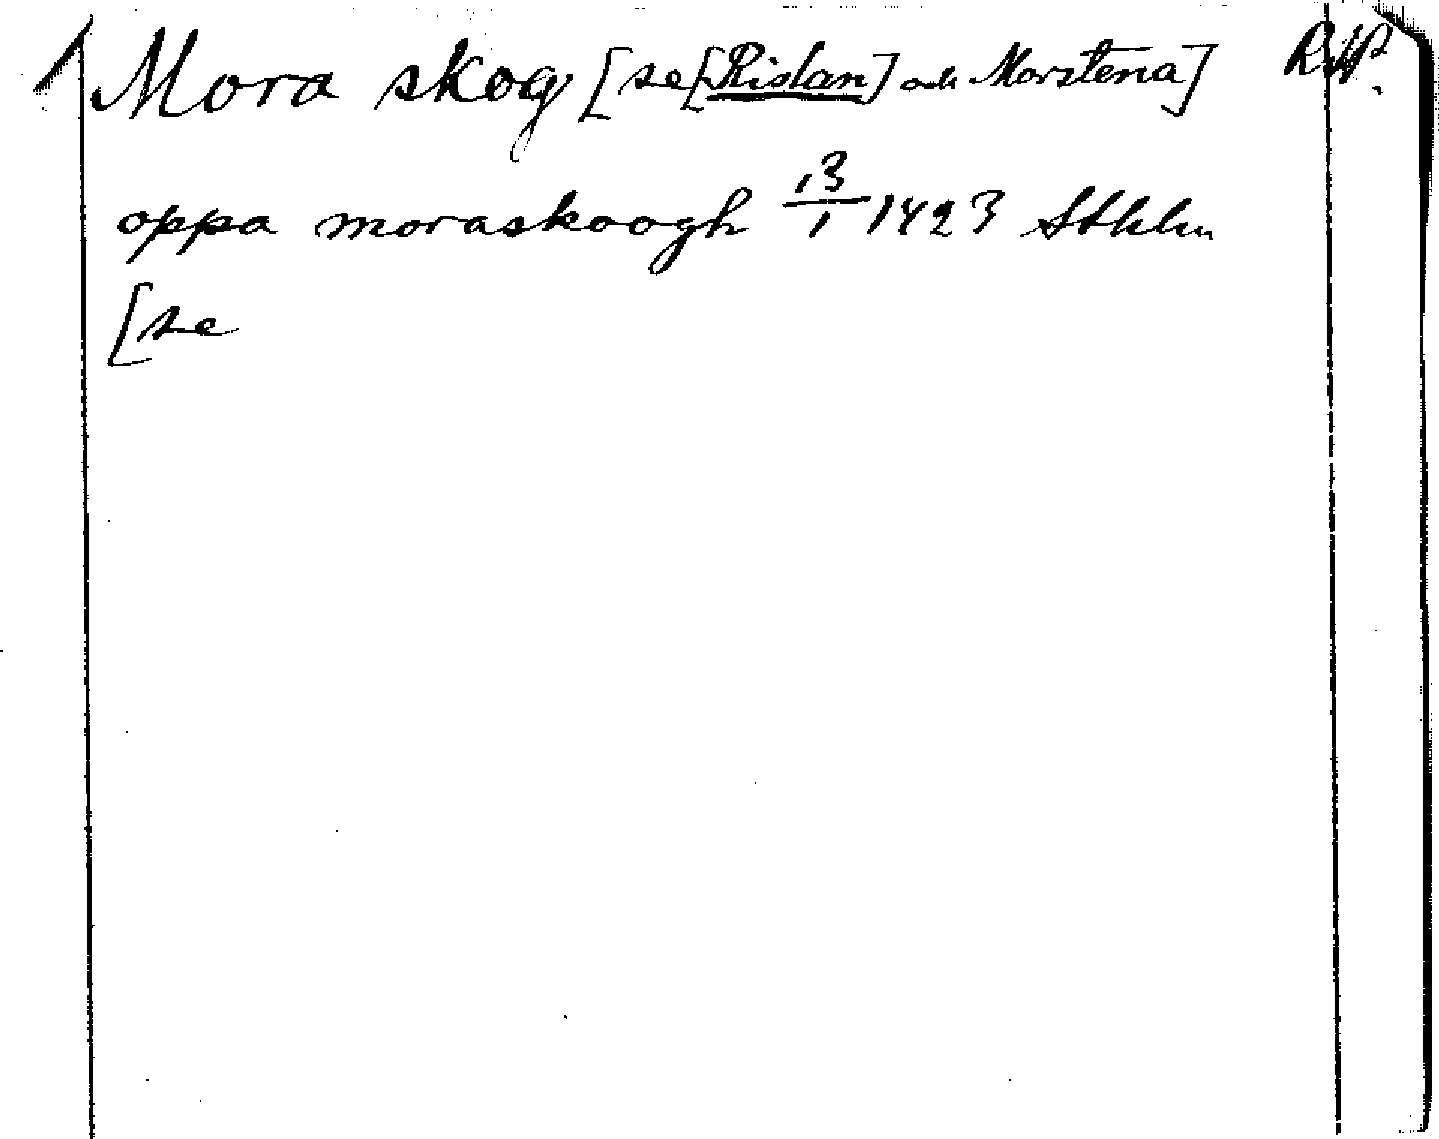 Mora skog [se [Rislan] och Morstena]
oppa moraskoogh 13/1 1423 Sthlm
[se